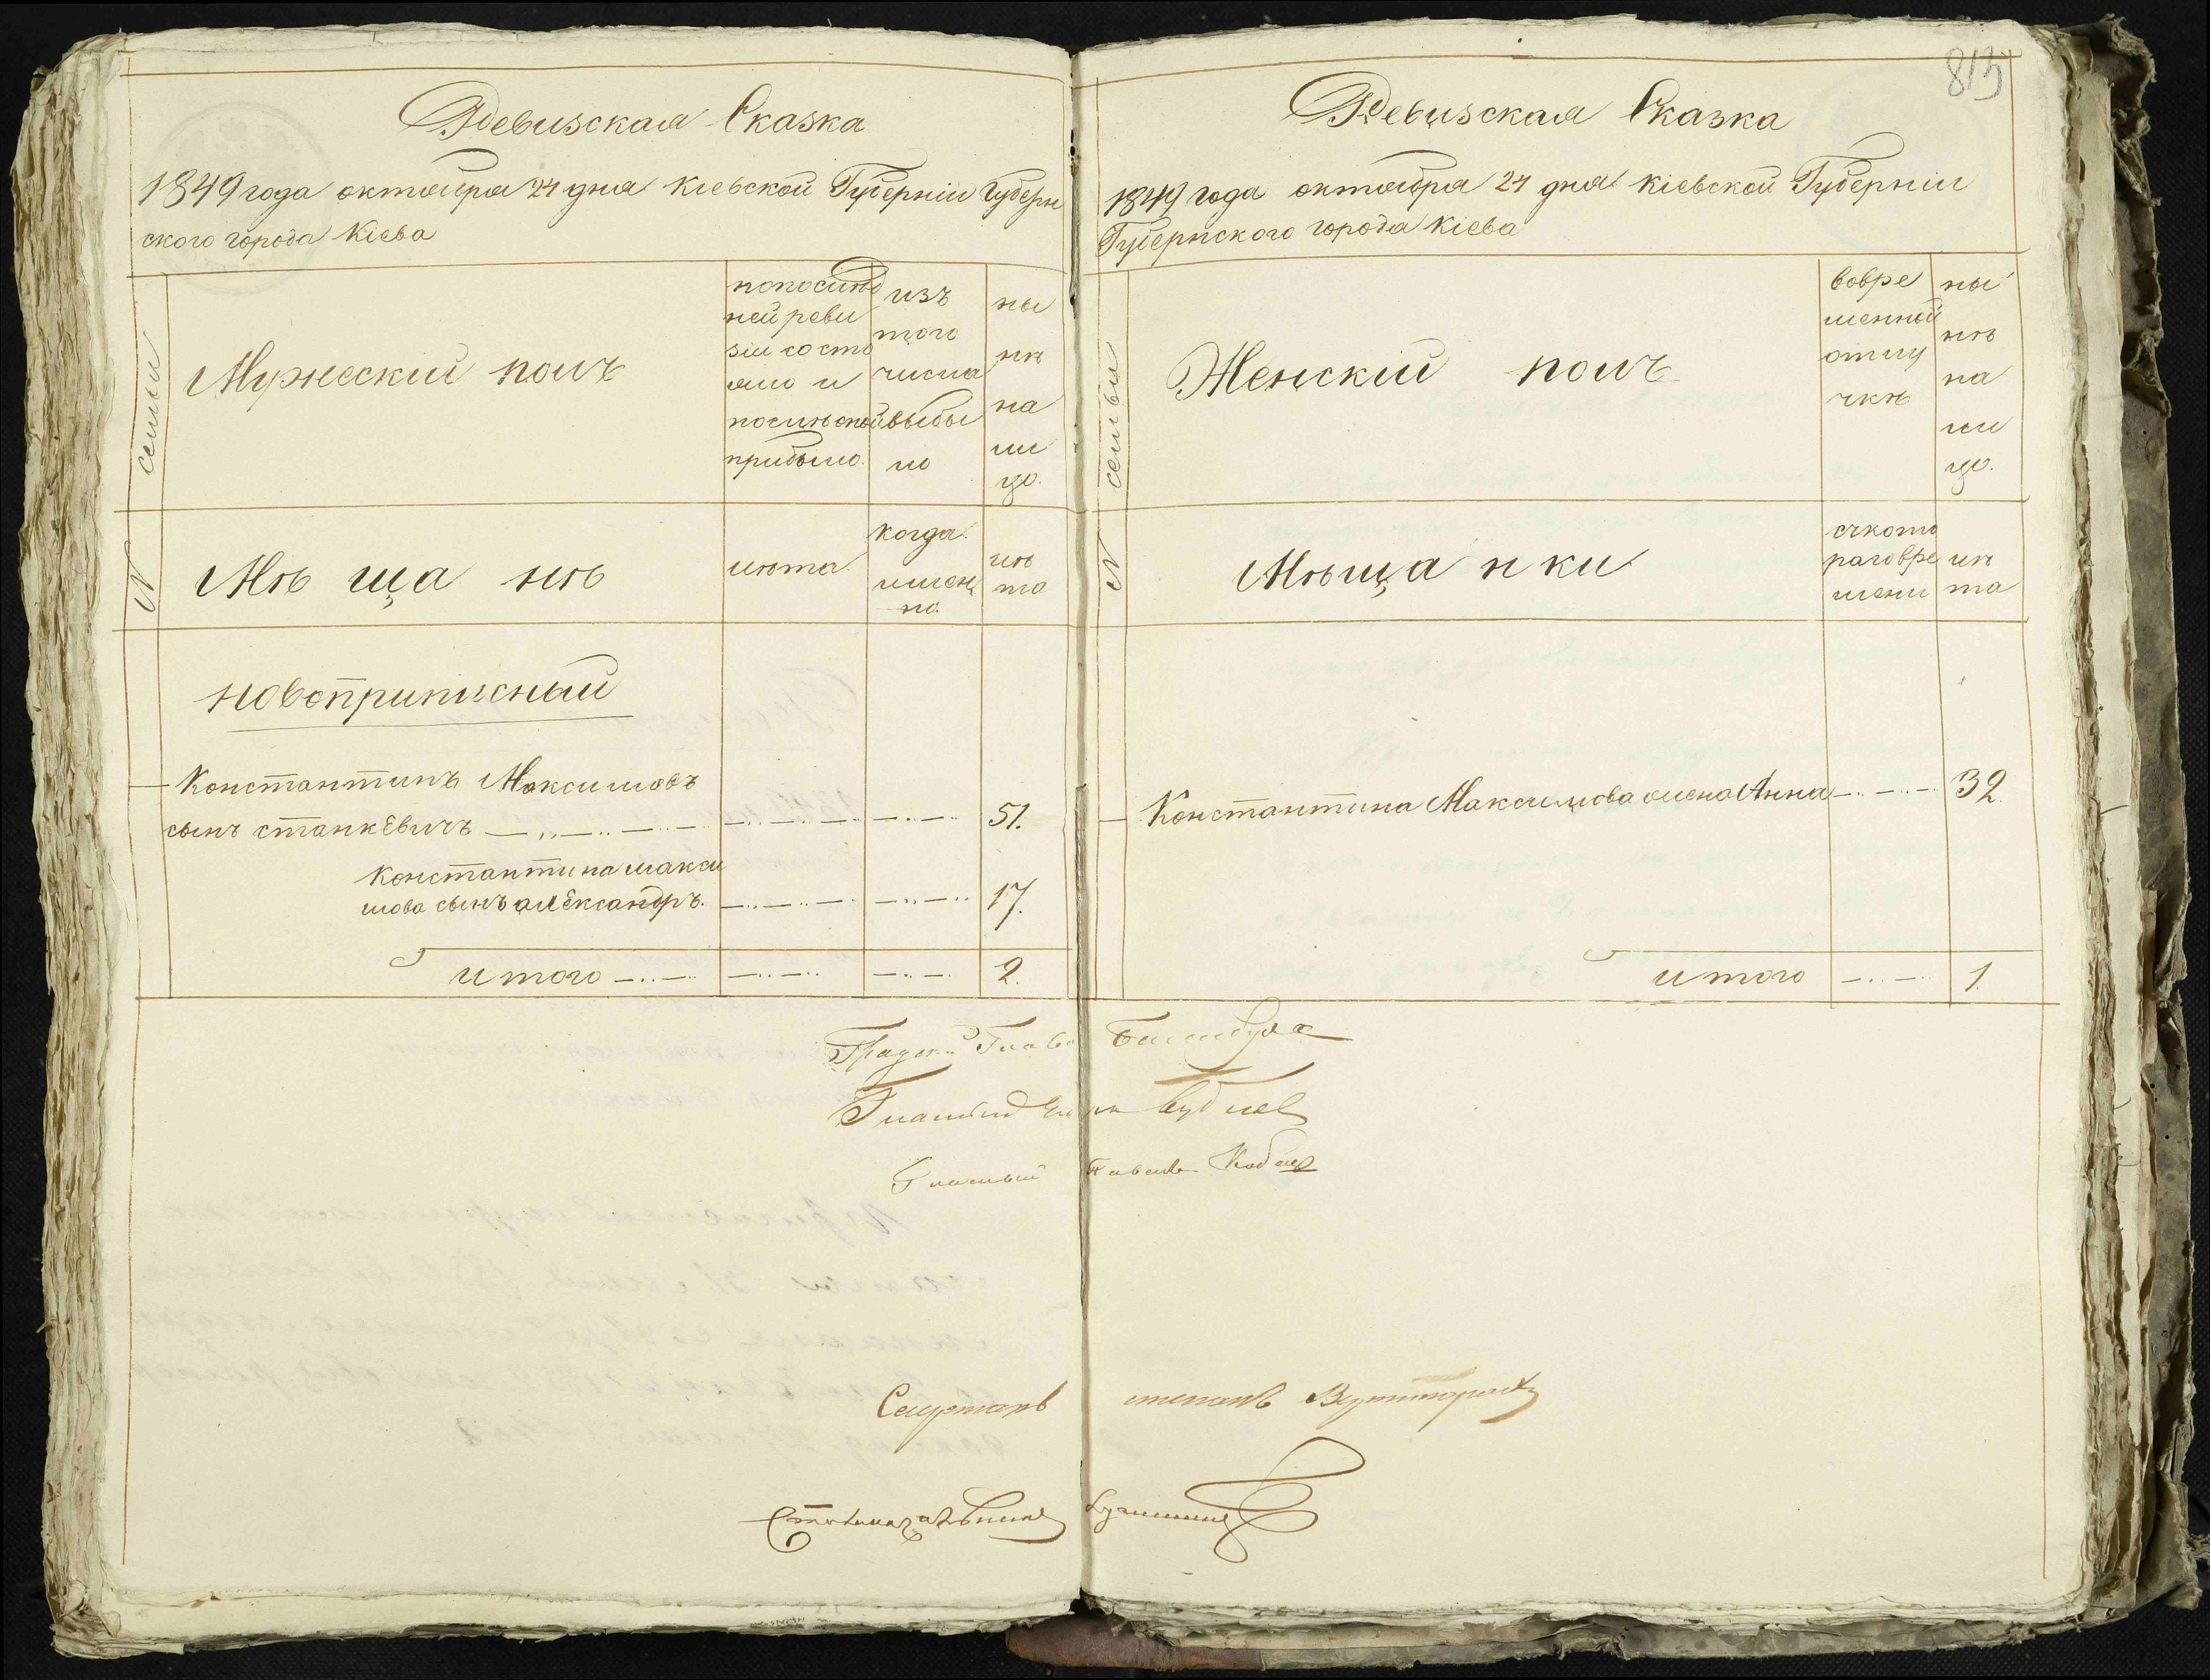 813
Ревизская Сказка
1849 года октября 24 дня Кіевской Губерніи Губерн
ского города Кіева
семьи
Мужескій полъ
попослѣд
ней реви
зіи состо
яло и
послѣ оной
прибыло.
изъ
того
числа
выбы
ло
ны
нѣ
на
ли
цо.
N
Мѣ ща нѣ
лѣта
когда
имен
но.
лѣ
та
новоприписный
Константинъ Максимовъ
сынъ станкевичъ — „ — .. — — .. — .. — — .. — .. 51.
Константина макси
мова сынъ александръ. — .. — .. — — .. — .. 17.
итого — .. — — .. — .. — .. — 2.
Ревизская Сказка
1849 года октября 24 дня Кіевской Губерніи
Губернского города Кіева
семьи
Женскій полъ
вовре
менной
отлу
чкѣ
ны
нѣ
на
ли
цо.
N
Мѣща нки
съкото
раговре
мени
лѣ
та
Константина Максимова жена Анна — .. — .. — 32.
итого — .. — 1.
Градскій Глава
Гласный
Гласный
Секретарь